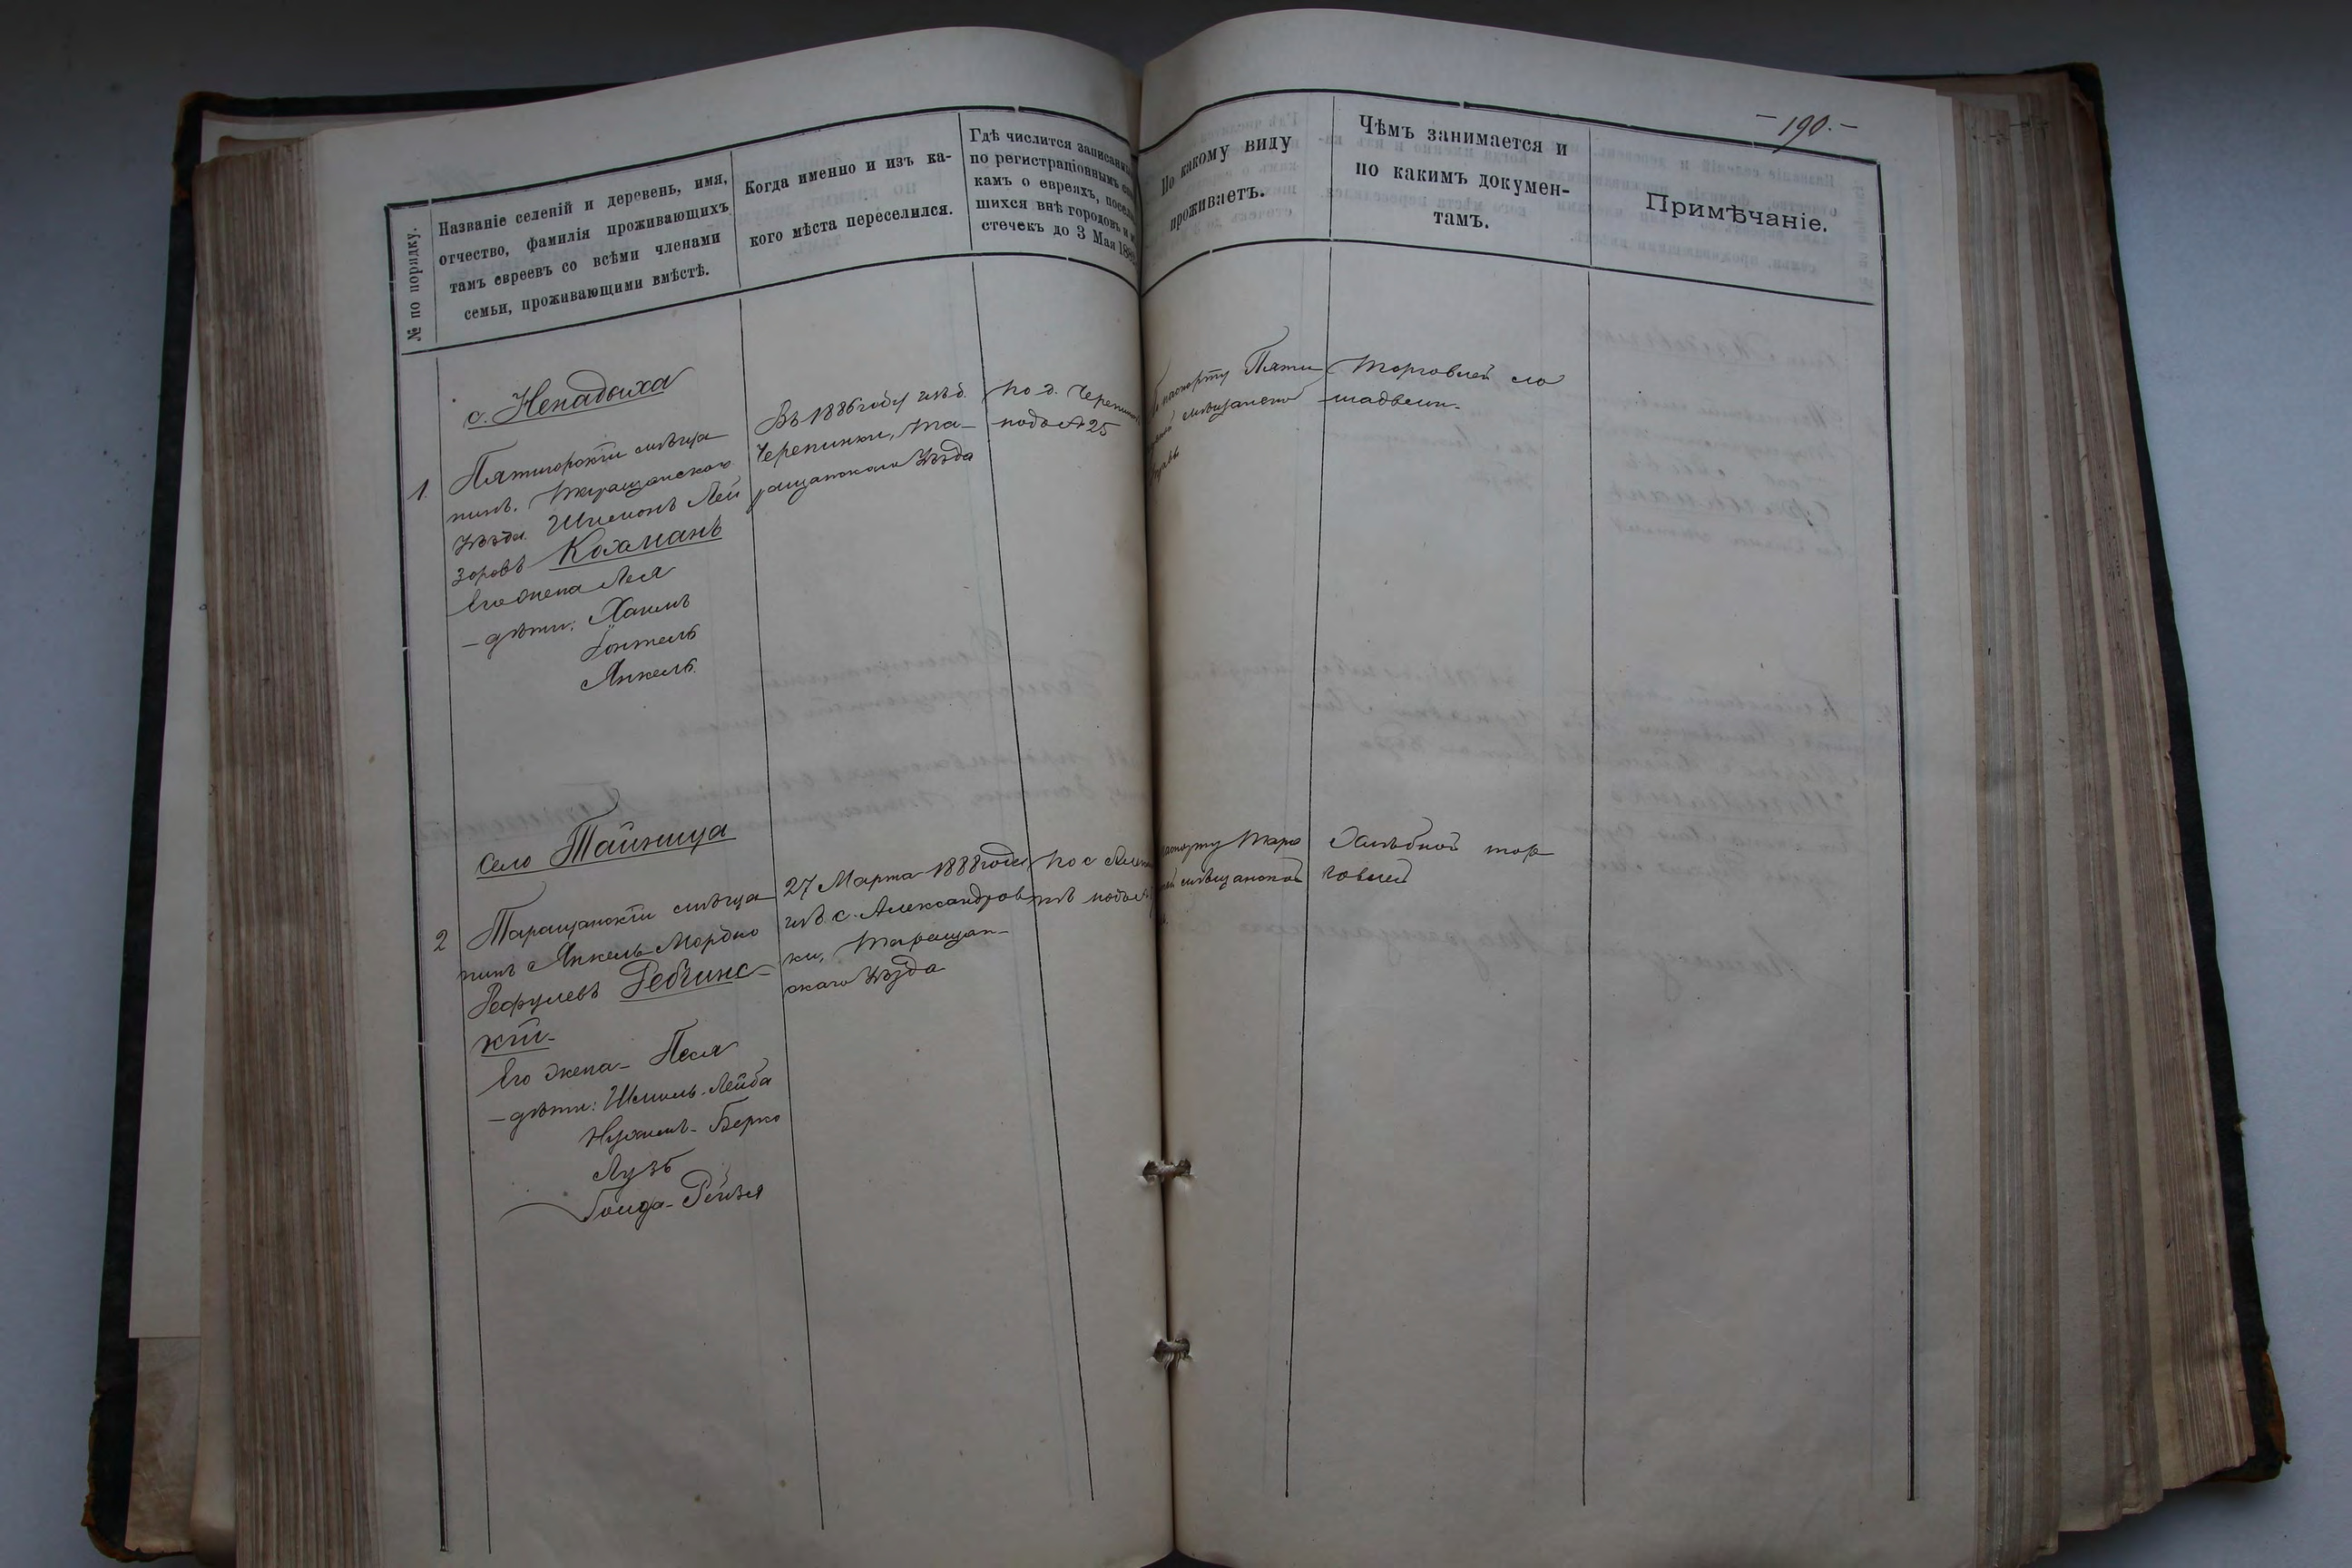 — 190. —
№ по порядку.
Названіе селеній и деревень, имя,
отчество, фамилія проживающихъ
тамъ евреевъ со всѣми членами
семьи, проживающими вмѣстѣ.
Когда именно и изъ ка-
кого мѣста переселился.
Гдѣ числится
по регистраціоннымъ
камъ о евреяхъ,
шихся внѣ городовъ и
стечекъ до 3 Мая
По какому виду
проживаетъ.
Чѣмъ занимается и
по какимъ докумен-
тамъ.
Примѣчаніе.
с. Ненадыха
1
Пятигорскій мѣща
нинъ, Таращанскаго
уѣзда Шлемонъ Лей
зоровъ Кохманъ
Его жена Лея
— дѣти: Хаимъ
Янкель
Въ 1886 году изъ д.
Черепинки, Та-
ращанскаго уѣзда
по д.
подъ № 25
паспорту Пяти
мѣщанской
управы
Торговлей ло
шадьми.
Село Тайница
2
Таращанскій мѣща
нинъ Янкель-Мордко
Рефулевъ Ребчинс-
кій-
Его жена- Песя
— дѣти: Шмиль-Лейба
Нухимъ- Берко
Лузь
Рейзя
27 Марта 1888 года
изъ с. Александров
ки, Таращан-
скаго уѣзда
по с
кѣ подъ №
паспорту Тара
мѣщанской
Хлѣбной тор
говлей